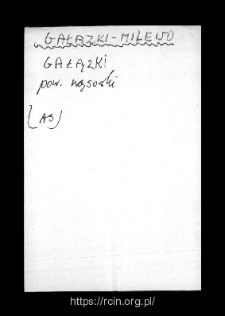 GAŁĄZKI-MILEWO
GAŁĄZKI
pow. wąsoski
(AS)
https://rcin.org.pl/